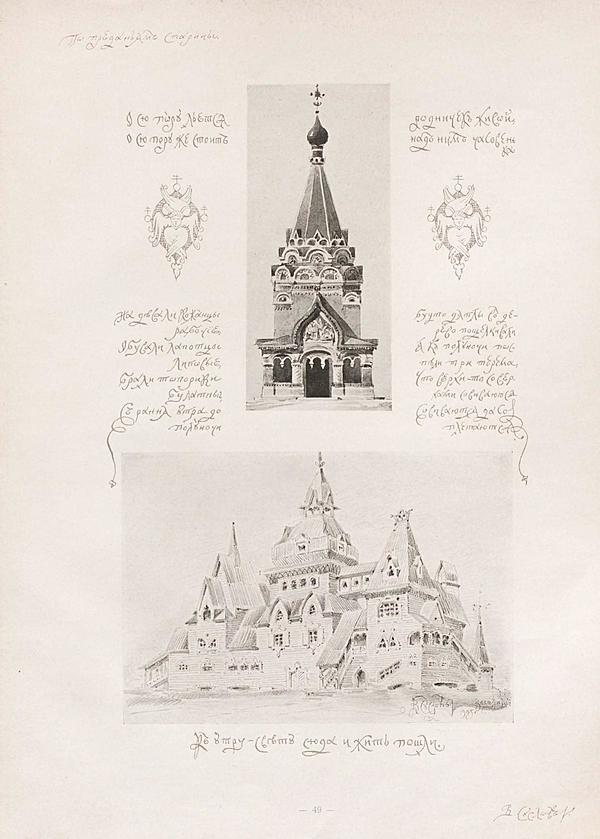 По преданьямъ старины.
О сю пору льется
О сю пору же стоитъ
родничекъ живой,
надъ нимъ часовень
ка
Надѣвали кожанцы
рабочіе,
Обували лапотцы
Липовые,
Брали топорики
Булатные
Съ ранна утра до
полуночи
Будто дятлы въ де-
рево пощелкивали
А къ полуночи пос-
пѣли три терема,
Что верхи-то съ вер-
хами свиваются
Свиваются да со-
плетаются
Къ утру-свѣту сюда и жить пошли.
— 49 —
В Сусловъ